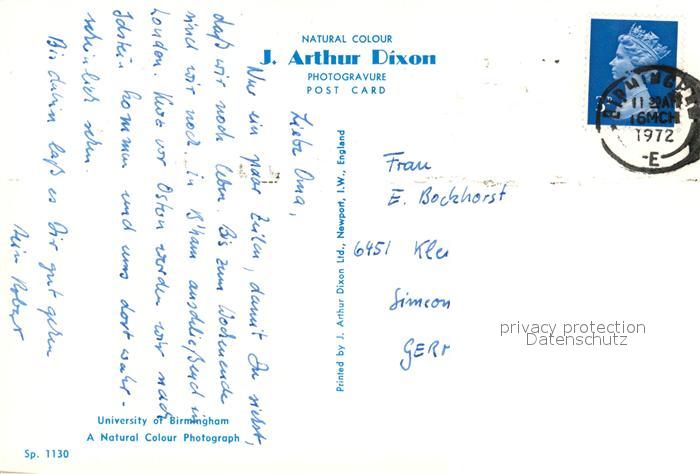 NATURAL COLOUR
J. Arthur Dixon
PHOTOGRAVURE
POST CARD
Liebe Oma,
Nur ein paar Zeilen, damit Du siehst,
daß wir noch leben. Bis zum Wochenende
sind wir noch in B'ham anschließend in
London. Kurz vor Ostern werden wir nach
Idstein kommen und uns dort wahr-
scheinlich sehen.
Bis dahin laß es Dir gut gehen
Dein Robert
University of Birmingham
A Natural Colour Photograph
Sp. 1130
Printed by J. Arthur Dixon Ltd., Newport, I.W., England
BIRMINGHAM
11 30 AM
16 MCH
1972
-E-
Frau
E. Bockhorst
6451 Kle
Simeon
GERM
privacy protection
Datenschutz